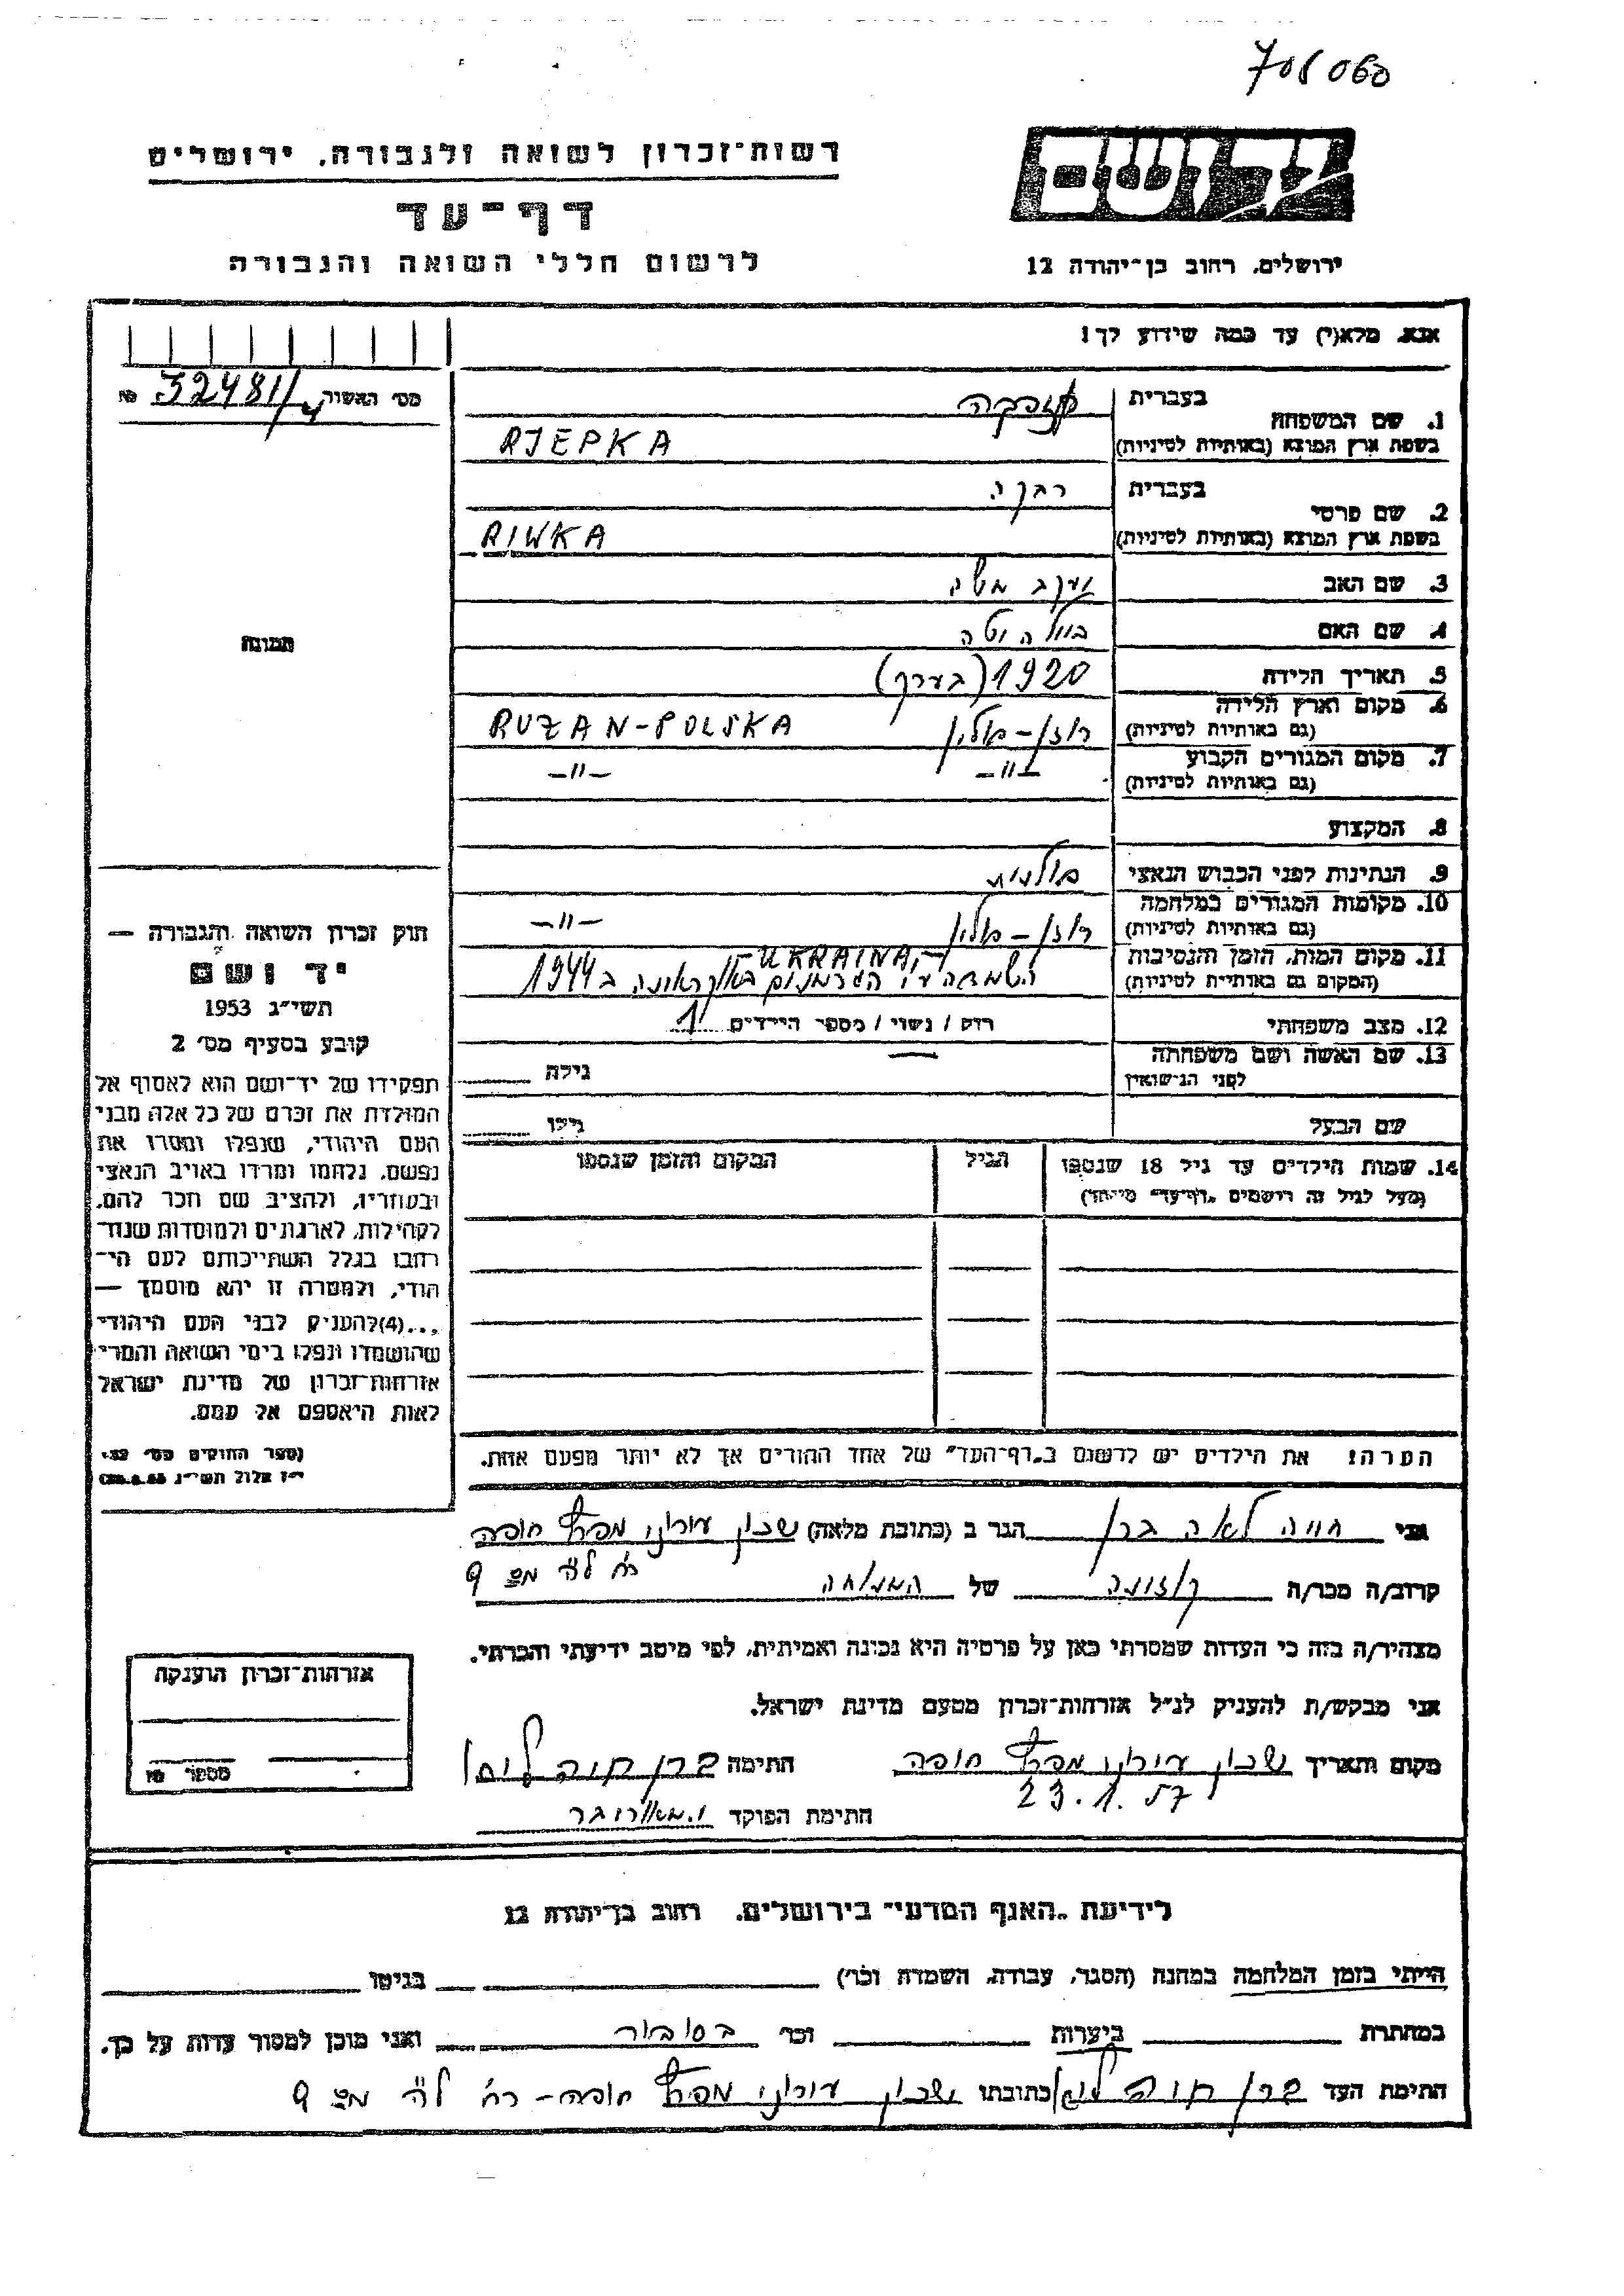 705060
רשות־זכרון לשואה ולגבורה, ירושלים
דף־עד
לרשום חללי השואה והגבורה
יד ושם
ירושלים, רחוב בן־יהודה 12
אנא, מלא(י) עד כמה שידוע לך!
מס׳ האשור 32481/4 №
1. שם המשפחה
בעברית
בשפת ארץ המוצא (באותיות לטיניות) RJEPKA
2. שם פרטי
בעברית רבקה
בשפת ארץ המוצא (באותיות לטיניות) RIWKA
3. שם האב יעקב משה
4. שם האם
5. תאריך הלידה 1920 (בערך)
6. מקום וארץ הלידה
(גם באותיות לטיניות) רוזן – פולין RUZAN-POLSKA
7. מקום המגורים הקבוע
(גם באותיות לטיניות) –״– –״–
8. המקצוע
9. הנתינות לפני הכבוש הנאצי פולנית
10. מקומות המגורים במלחמה
(גם באותיות לטיניות) רוזן – פולין –״–
11. מקום המות, הזמן והנסיבות
(המקום גם באותיות לטיניות) UKRAINA,
הושמדה ע״י הגרמנים באוקראינה ב 1944
12. מצב משפחתי רווק / נשוי / מספר הילדים 1
13. שם האשה ושם משפחתה
לפני הנישואין גילה
שם הבעל גילו
14. שמות הילדים עד גיל 18 שנספו
(מעל לגיל זה רושמים „דף־עד״ מיוחד)
הגיל
המקום והזמן שנספו
הערה: את הילדים יש לרשום ב„דף־העד״ של אחד ההורים אך לא יותר מפעם אחת.
תמונה
חוק זכרון השואה והגבורה —
יד ושם
תשי״ג 1953
קובע בסעיף מס׳ 2
תפקידו של יד־ושם הוא לאסוף אל
המולדת את זכרם של כל אלה מבני
העם היהודי, שנפלו ומסרו את
נפשם, נלחמו ומרדו באויב הנאצי
ובעוזריו, ולהציב שם וזכר להם,
לקהילות, לארגונים ולמוסדות שנח־
רבו בגלל השתייכותם לעם הי־
הודי, ולמטרה זו יהא מוסמך —
...(4) להעניק לבני העם היהודי
שהושמדו ונפלו בימי השואה והמרי
אזרחות־זכרון של מדינת ישראל
לאות היאספם אל עמם.
(ספר החוקים מס׳ 132,
י״ז אלול תשי״ג 28.8.53)
אני חויה לאה ברן הגר ב (כתובת מלאה) שכון עירוני מפרץ חיפה
רח׳ ל״ה מס 9
קרוב/ה מכר/ה קוזינה של המנוחה
מצהיר/ה בזה כי העדות שמסרתי כאן על פרטיה היא נכונה ואמיתית, לפי מיטב ידיעתי והכרתי.
אני מבקש/ת להעניק לנ״ל אזרחות־זכרון מטעם מדינת ישראל.
מקום ותאריך שכון עירוני מפרץ חיפה חתימה ברן חויה לאה
23.1.57
חתימת הפוקד
אזרחות־זכרון הוענקה
מספר מז
לידיעת „האגף המדעי״ בירושלים, רחוב בן־יהודה 12
הייתי בזמן המלחמה במחנה (הסגר, עבודה, השמדה וכו׳) בגיטו
במחתרת ביערות וכו׳ בסיביר ואני מוכן למסור עדות על כך.
חתימת העד ברן חויה לאה כתובתו שכון עירוני מפרץ חיפה – רח׳ ל״ה מס 9